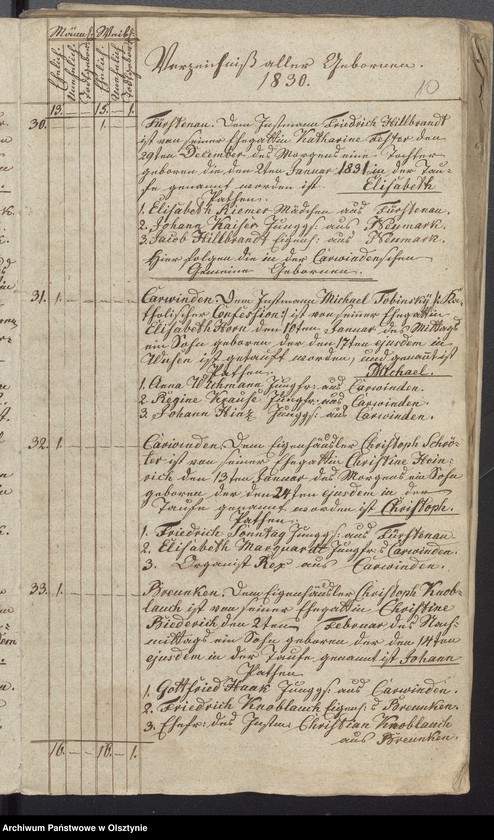 Männl: Weibl:
Ehelich. Unehelich. Todtgeboren. Ehelich. Unehelich. Todtgeboren.
Verzeichniß aller Gebornen.
1830.
10
13. — — 15. — 1.
30. 1. Fürstenau. Dem Instmann Friedrich Hillbrandt
ist von seiner Ehegattin Katharine Fester den
29ten December des Morgens eine Tochter
geboren die den 2ten Januar 1831 in der Tau-
fe genannt worden ist Elisabeth
Pathen.
1. Elisabeth Riemer Mädchen aus Fürstenau.
2. Johann Kaiser Jungg: aus Neumark.
3. Jacob Hillbrandt Eigens: aus Neumark.
Hier folgen die in der Carwindenschen
Gemeine Gebornen.
31. 1. Carwinden. Dem Instmann Michael Tobinsky (: Ka-
tholischer Confession :) ist von seiner Ehegattin
Elisabeth Horn den 10ten Januar des Mittags
ein Sohn geboren der den 17ten ejusdem in
Wusen ist getauft worden, und genannt ist
Pathen. Michael.
1. Anna Wichmann Jungfr: aus Carwinden.
2. Regine Krause Jungfr: aus Carwinden.
3. Johann Hinz Jungg: aus Carwinden.
32. 1. Carwinden. Dem Eigenhäusler Christoph Schrö-
ter ist von seiner Ehegattin Christine Hein-
rich den 13ten Januar des Morgens ein Sohn
geboren der den 24ten ejusdem in der
Taufe genannt worden ist Christoph.
Pathen.
1. Friedrich Sonntag Jungg: aus Fürstenau
2. Elisabeth Marquardt Jungfr: a Carwinden.
3. Organist Rex aus Carwinden.
33. 1. Breunken. Dem Eigenhäusler Christoph Knob-
lauch ist von seiner Ehegattin Christine
Biederich den 2ten Februar des Nach-
mittags ein Sohn geboren der den 14ten
ejusdem in der Taufe genannt ist Johann
Pathen
1. Gottfried Haak Jungg: aus Carwinden.
2. Friedrich Knoblauch Eigens: a Breunken.
3. Ehefr: des Instm: Christian Knoblauch
aus Breunken.
16. — — 16. — 1.
Archiwum Państwowe w Olsztynie